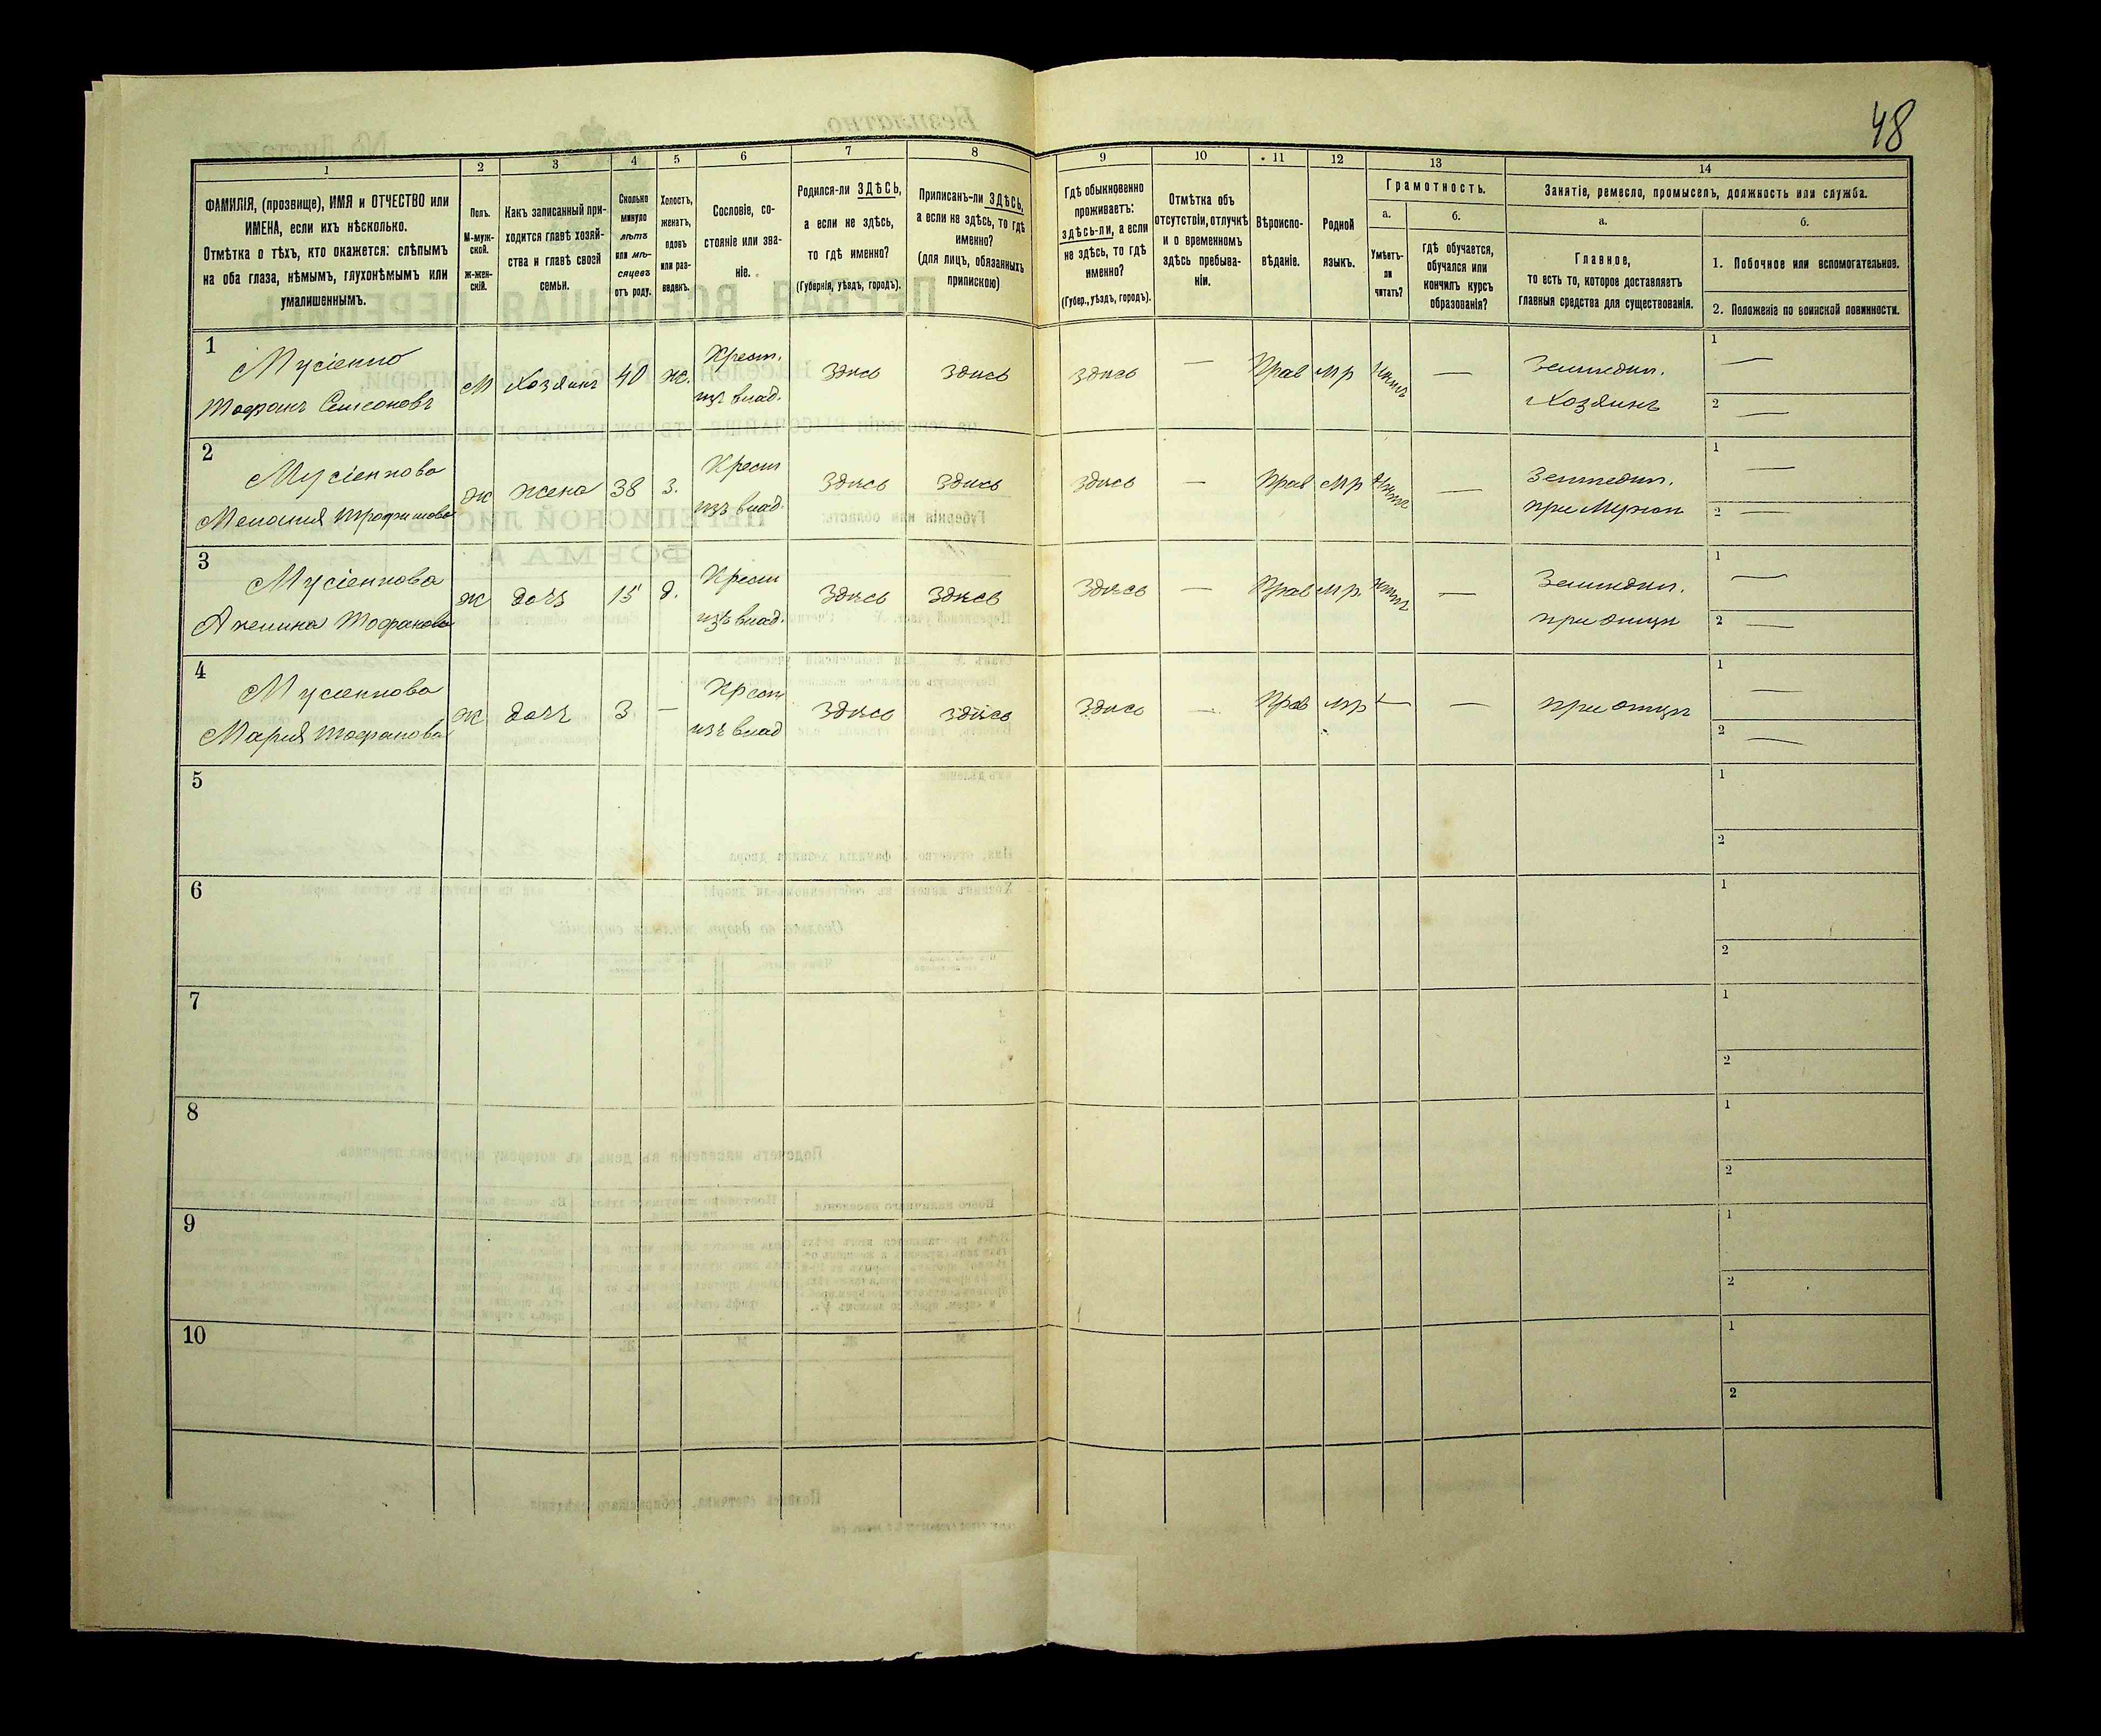 48
1 2 3 4 5 6 7 8 9 10 11 12 13 14
ФАМИЛІЯ, (прозвище), ИМЯ и ОТЧЕСТВО или
ИМЕНА, если ихъ нѣсколько.
Отмѣтка о тѣхъ, кто окажется: слѣпымъ
на оба глаза, нѣмымъ, глухонѣмымъ или
умалишеннымъ.
Полъ.
М-муж-
ской.
ж-жен-
скій.
Какъ записанный при-
ходится главѣ хозяй-
ства и главѣ своей
семьи.
Сколько
минуло
лѣтъ
или мѣ-
сяцевъ
отъ роду.
Холостъ,
женатъ,
вдовъ
или раз-
веденъ.
Сословіе, со-
стояніе или зва-
ніе.
Родился-ли ЗДѢСЬ,
а если не здѣсь,
то гдѣ именно?
(Губернія, уѣздъ, городъ).
Приписанъ-ли ЗДѢСЬ,
а если не здѣсь, то гдѣ
именно?
(для лицъ, обязанныхъ
припискою)
Гдѣ обыкновенно
проживаетъ:
здѣсь-ли, а если
не здѣсь, то гдѣ
именно?
(Губер., уѣздъ, городъ).
Отмѣтка объ
отсутствіи, отлучкѣ
и о временномъ
здѣсь пребыва-
ніи.
Вѣроиспо-
вѣданіе.
Родной
языкъ.
Грамотность.
а.
Умѣетъ-
ли
читать?
б.
гдѣ обучается,
обучался или
кончилъ курсъ
образованія?
Занятіе, ремесло, промыселъ, должность или служба.
а.
Главное,
то есть то, которое доставляетъ
главныя средства для существованія.
б.
1. Побочное или вспомогательное.
2. Положеніе по воинской повинности.
1
Мусіенко
Тофанъ Семеоновъ
М Хозяинъ 40 ж.
Крест.
изъ влад.
Здѣсь Здѣсь здѣсь — Прав мр нѣтъ —
Земледѣл.
Хозяинъ
1 —
2 —
2
Мусіенкова
Меланія Трофимова
ж жена 38 з.
Крест
изъ влад.
Здѣсь Здѣсь здѣсь — Прав мр нѣтъ —
Земледѣл.
при Мужѣ
1 —
2 —
3
Мусіенкова
Акелина Тофанова
ж дочь 15 д.
Крест
изъ влад.
Здѣсь Здѣсь Здѣсь — Прав мр нѣтъ —
Земледѣл.
при отцѣ
1 —
2 —
4
Мусіенкова
Марія Тофанова
ж дочь 3 —
Крест
изъ влад
Здѣсь здѣсь Здѣсь — Прав мр — —
при отцѣ
1 —
2 —
5
1
2
6
1
2
7
1
2
8
1
2
9
1
2
10
1
2